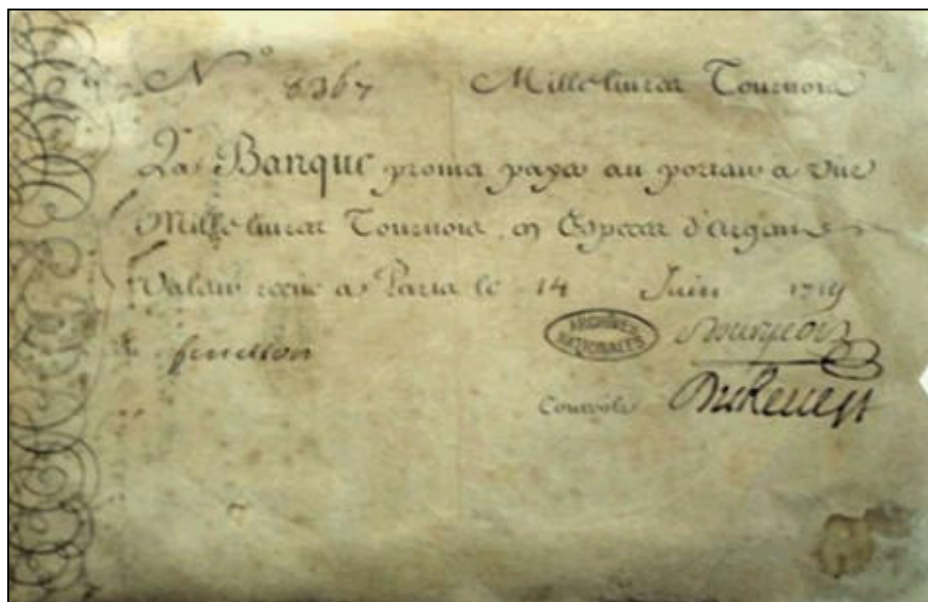 N° 8367 Mille livres Tournois
La Banque promet payer au porteur a vüe
Mille livres Tournois, en Especes d'Argent
Valeur reçue a Paris le 14 Juin 1719
fenellon
ARCHIVES NATIONALES
Bourgeois
Controlé Durevest